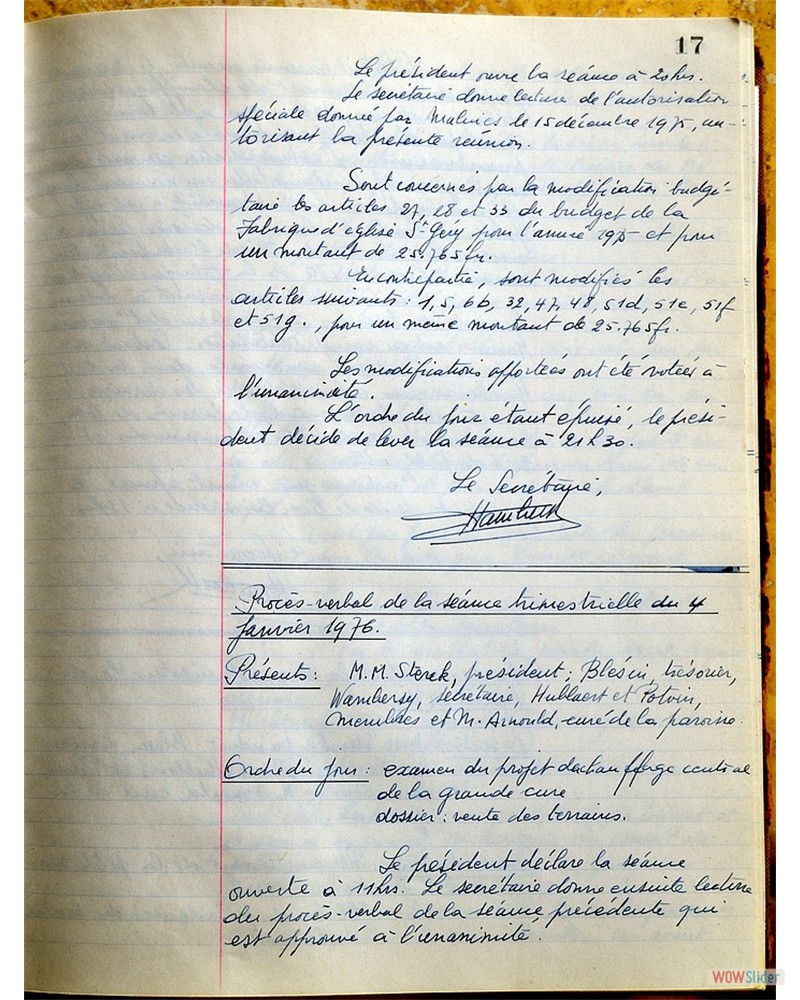 17
Le président ouvre la séance à 20hrs.
Le secrétaire donne lecture de l'autorisation
spéciale donnée par Malines le 15 décembre 1975, au-
torisant la présente réunion.
Sont concernés par la modification budgé-
taire les articles 27, 28 et 33 du budget de la
Fabrique d'église St-Géry pour l'année 1975 et pour
un montant de 25.765fr.
En contrepartie, sont modifiés les
articles suivants : 1, 5, 6b, 32, 47, 48, 51d, 51e, 51f
et 51g., pour un même montant de 25.765fr.
Les modifications apportées ont été votées à
l'unanimité.
L'ordre du jour étant épuisé, le prési-
dent décide de lever la séance à 21h30.
Le Secrétaire,
Procès-verbal de la séance trimestrielle du 4
Janvier 1976.
Présents : M.M. Sterck, président ; Blésin, trésorier,
Wambersy, secrétaire, Hublaert et Potvin,
membres et M. Arnould, curé de la paroisse.
Ordre du jour : examen du projet de chauffage central
de la grande cure
dossier : vente des terrains.
Le président déclare la séance
ouverte à 11hrs. Le secrétaire donne ensuite lecture
du procès-verbal de la séance précédente qui
est approuvé à l'unanimité.
WOWSlider